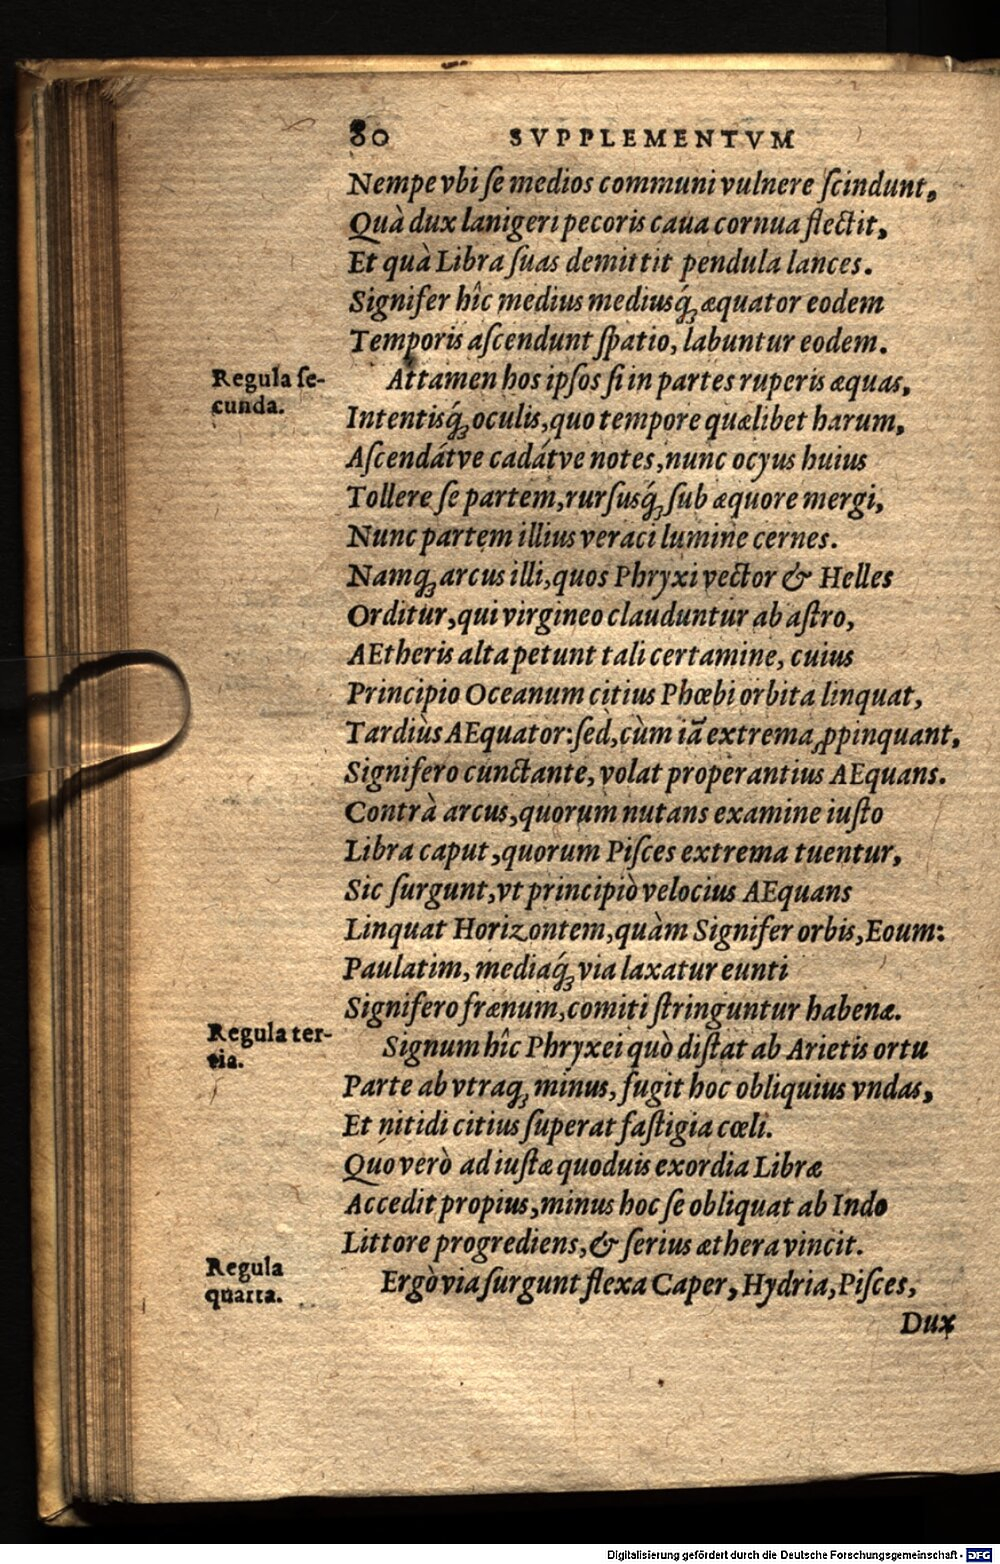 80 SVPPLEMENTVM
Nempe vbi ſe medios communi vulnere ſcindunt,
Quà dux lanigeri pecoris caua cornua flectit,
Et quà Libra ſuas demittit pendula lances.
Signifer hîc medius mediusq́ꝫ æquator eodem
Temporis aſcendunt ſpatio, labuntur eodem.
Regula ſe-
cunda.
Attamen hos ipſos ſi in partes ruperis æquas,
Intentisq́ꝫ oculis, quo tempore quælibet harum,
Aſcendátve cadátve notes, nunc ocyus huius
Tollere ſe partem, rurſusq́ꝫ ſub æquore mergi,
Nunc partem illius veraci lumine cernes.
Namqꝫ arcus illi, quos Phryxi vector & Helles
Orditur, qui virgineo clauduntur ab aſtro,
AEtheris alta petunt tali certamine, cuius
Principio Oceanum citius Phœbi orbita linquat,
Tardiùs AEquator: ſed, cùm iã extrema ꝓpinquant,
Signifero cunctante, volat properantius AEquans.
Contrà arcus, quorum nutans examine iuſto
Libra caput, quorum Piſces extrema tuentur,
Sic ſurgunt, vt principiò velocius AEquans
Linquat Horizontem, quàm Signifer orbis, Eoum:
Paulatim, mediaq́ꝫ via laxatur eunti
Signifero frænum, comiti ſtringuntur habenæ.
Regula ter-
tia.
Signum hîc Phryxei quò diſtat ab Arietis ortu
Parte ab vtraqꝫ minus, fugit hoc obliquius vndas,
Et nitidi citius ſuperat faſtigia cœli.
Quo verò ad iuſtæ quoduis exordia Libræ
Accedit propius, minus hoc ſe obliquat ab Indo
Littore progrediens, & ſerius æthera vincit.
Regula
quarta.
Ergò via ſurgunt flexa Caper, Hydria, Piſces,
Dux
Digitalisierung gefördert durch die Deutsche Forschungsgemeinschaft - DFG